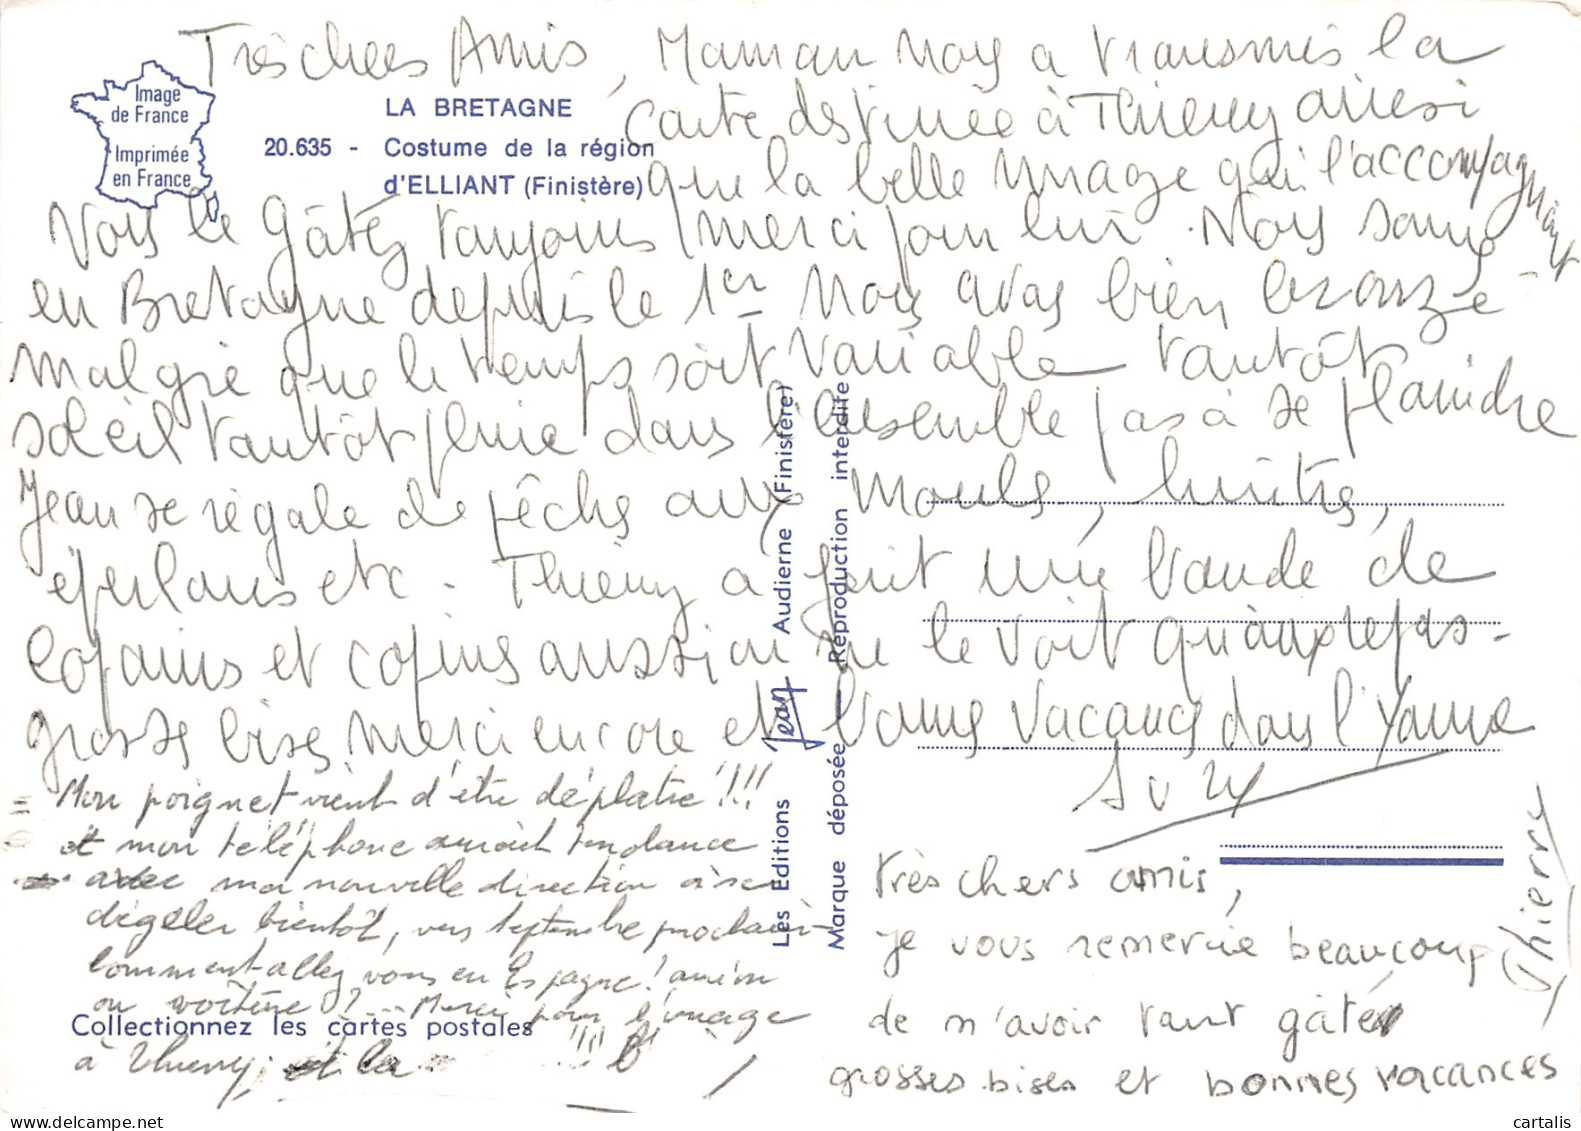 Très chers Amis, Maman nous a transmis la
carte destinée à Thierry ainsi
que la belle image qui l'accompagnait
Vous le gâtez toujours merci pour lui. Nous sommes
en Bretagne depuis le 1er Nous avons bien bronzé
malgré que le temps soit variable tantôt
soleil tantôt pluie dans l'ensemble pas à se plaindre
Jean se régale de pêche aux moules, huitres,
éperlans etc. Thierry a fait une bande de
copains et copines aussi on ne le voit qu'aux repas.
grosses bises merci encore et bonnes vacances dans l'Yonne
Mon poignet vient d'être déplatré !!!
et mon téléphone aurait tendance
avec ma nouvelle direction à se
dégeler bientôt, vers septembre prochain
comment allez vous en Espagne! avion
ou voiture? ... Merci pour l'image
à Thierry, et la
très chers amis,
je vous remercie beaucoup
de m'avoir tant gâté
grosses bises et bonnes vacances
Thierry
Image
de France
Imprimée
en France
LA BRETAGNE
20.635 - Costume de la région
d'ELLIANT (Finistère)
Les Editions Jean Audierne (Finistère)
Marque déposée - Reproduction interdite
Collectionnez les cartes postales
cartalis.com